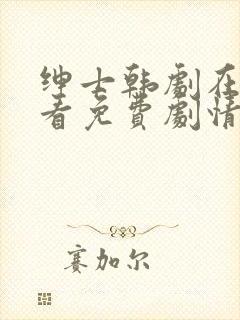 绅士韩剧在
看免费剧情
赛加尔